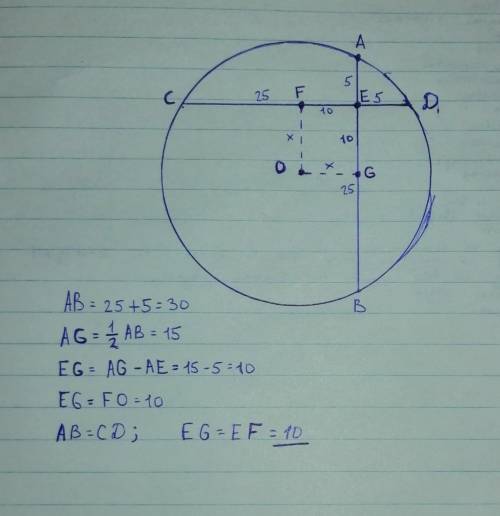 A
5
C 25 F E 5 D,
10
x 10
O x G
25
B
AB = 25 + 5 = 30
AG = 1/2 AB = 15
EG = AG - AE = 15 - 5 = 10
EG = FO = 10
AB = CD; EG = EF = 10